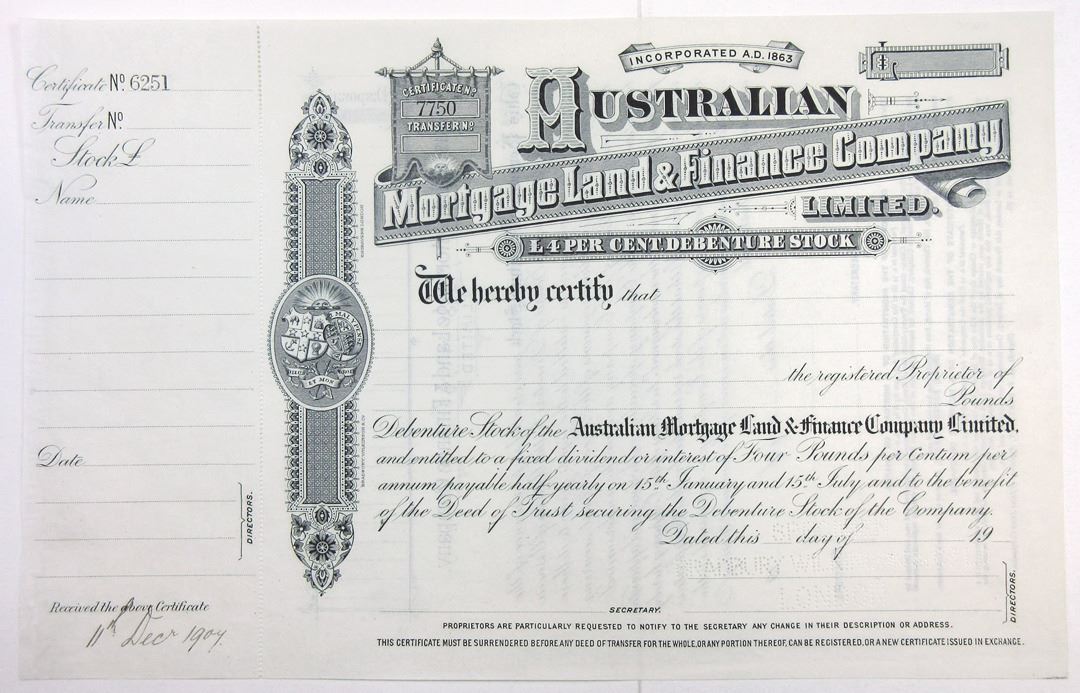 Certificate Nº 6251
Transfer Nº
Stock £
Name
Date
DIRECTORS.
Received the above Certificate
11th Decr 1907.
INCORPORATED A.D. 1863
CERTIFICATE Nº
7750
TRANSFER Nº
AUSTRALIAN
Mortgage Land & Finance Company
LIMITED.
£4 PER CENT. DEBENTURE STOCK
We hereby certify that
the registered Proprietor of
Pounds
Debenture Stock of the Australian Mortgage Land & Finance Company Limited,
and entitled to a fixed dividend or interest of Four Pounds per centum per
annum payable half-yearly on 15th January and 15th July and to the benefit
of the Deed of Trust securing the Debenture Stock of the Company.
Dated this day of 19
DIRECTORS.
SECRETARY.
PROPRIETORS ARE PARTICULARLY REQUESTED TO NOTIFY TO THE SECRETARY ANY CHANGE IN THEIR DESCRIPTION OR ADDRESS.
THIS CERTIFICATE MUST BE SURRENDERED BEFORE ANY DEED OF TRANSFER FOR THE WHOLE, OR ANY PORTION THEREOF, CAN BE REGISTERED, OR A NEW CERTIFICATE ISSUED IN EXCHANGE.